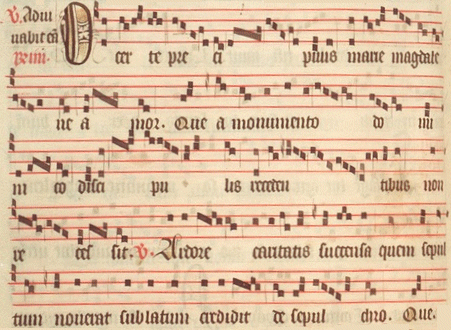 V. Adiu
uabit eū
Primi.
O cer te pre ci puus marie magdale
ne a mor. Que a monumento do mi
ni eo disci pu lis receden tibus non
re ces sit. V. Ardore caritatis succensa quem sepul
tum nouerat sublatum credidit de sepul chro. Que.